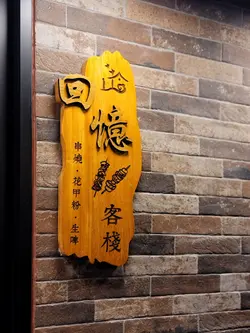 拾回憶客棧
串燒·花甲粉·生啤